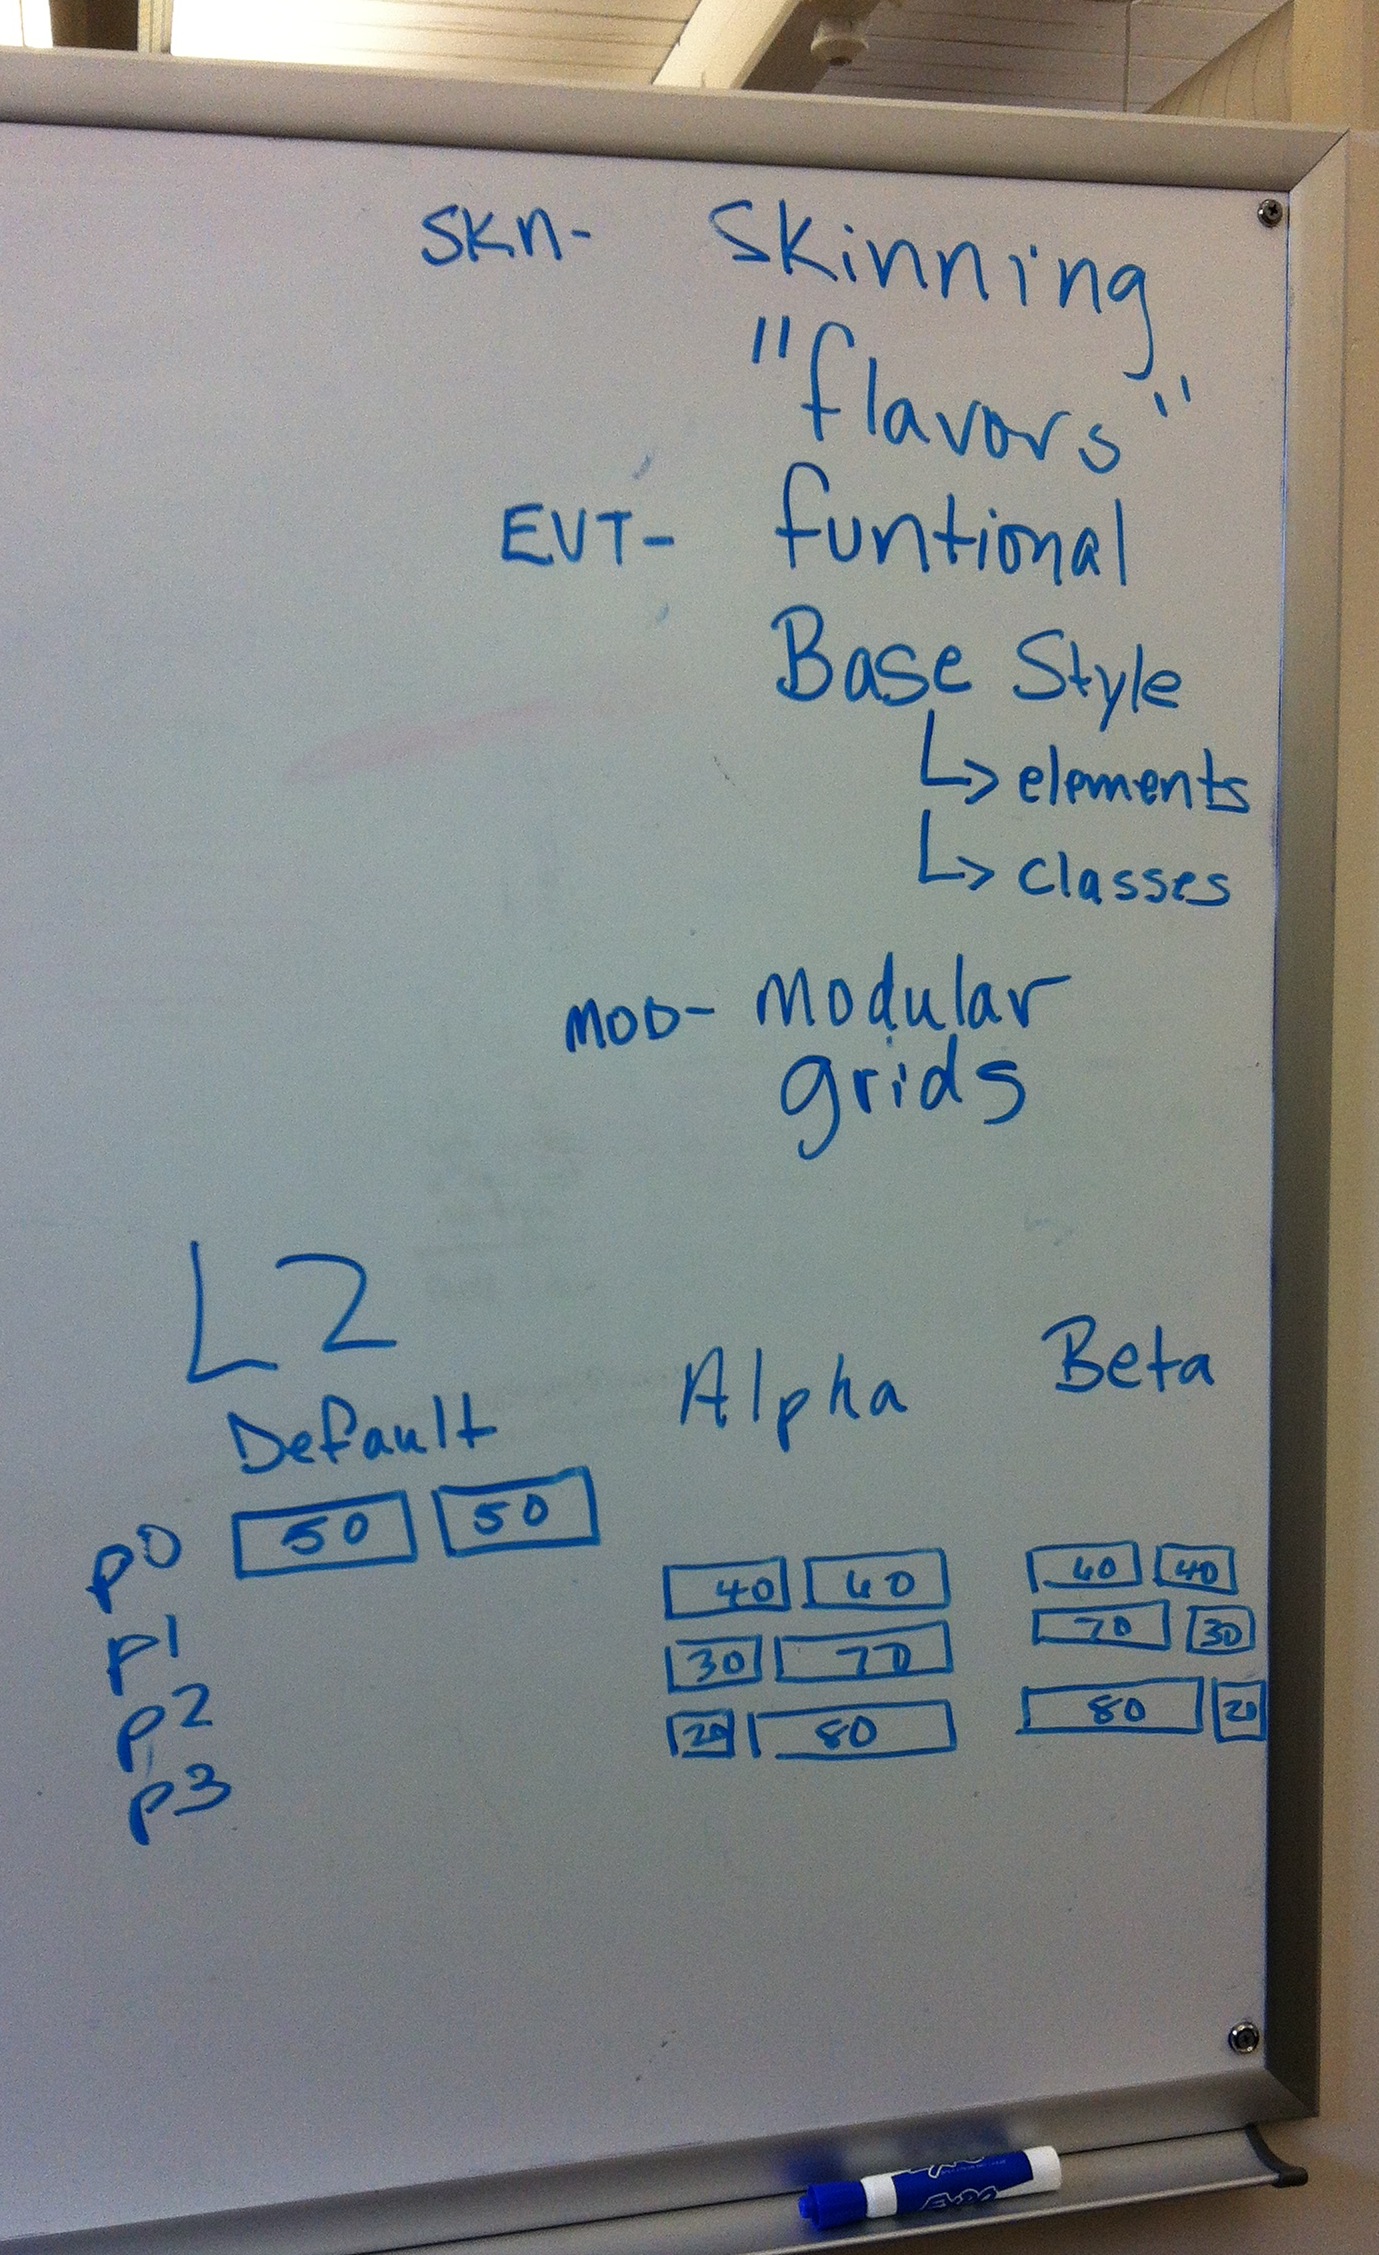 SKN- Skinning
"flavors"
EVT- funtional
Base Style
elements
classes
MOD- Modular
grids
L2
Default Alpha Beta
p0 50 50
40 60 60 40
p1 30 70 70 30
p2 20 80 80 20
p3
EXPO